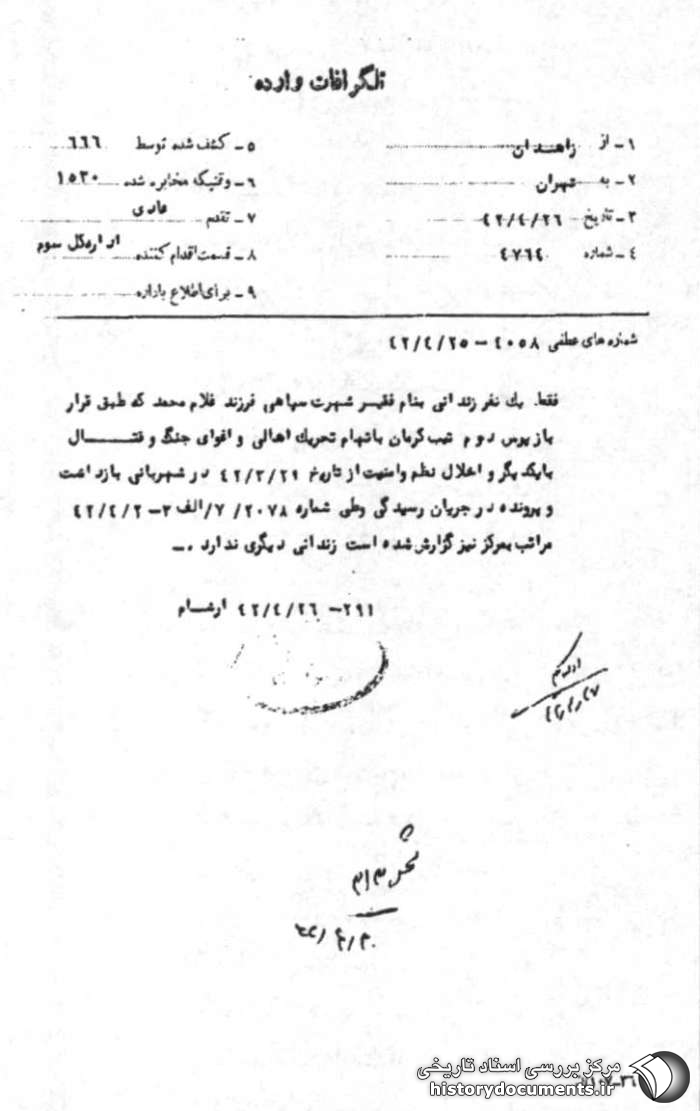 تلگرافات وارده
۱ - از زاهدان
۲ - به تهران
۳ - تاریخ ۴۲/۴/۲۶
۴ - شماره ۴۷۶۴
۵ - کشف شده توسط ۶۶۶
۶ - وقتیکه مخابره شده ۱۵۳۰
۷ - تقدم عادی
۸ - قسمت اقدام کننده اداره کل سوم
۹ - برای اطلاع باداره
شماره های عطفی ۴۰۵۸ - ۴۲/۴/۲۵
فقط یک نفر زندانی بنام فقیر شهرت سپاهی فرزند غلام محمد که طبق قرار
بازپرس دوم تیپ کرمان باتهام تحریک اهالی و اغوای جنگ و قتــــال
بایکدیگر و اخلال نظم وامنیت از تاریخ ۴۲/۲/۲۹ در شهربانی بازداشت
و پرونده در جریان رسیدگی وطی شماره ۲۰۷۸/ ۷/الف ۳ - ۴۲/۴/۲
مراتب بمرکز نیز گزارش شده است زندانی دیگری ندارد .-
۲۹۱ - ۴۲/۴/۲۶ ارشام
مرکز بررسی اسناد تاریخی
historydocuments.ir